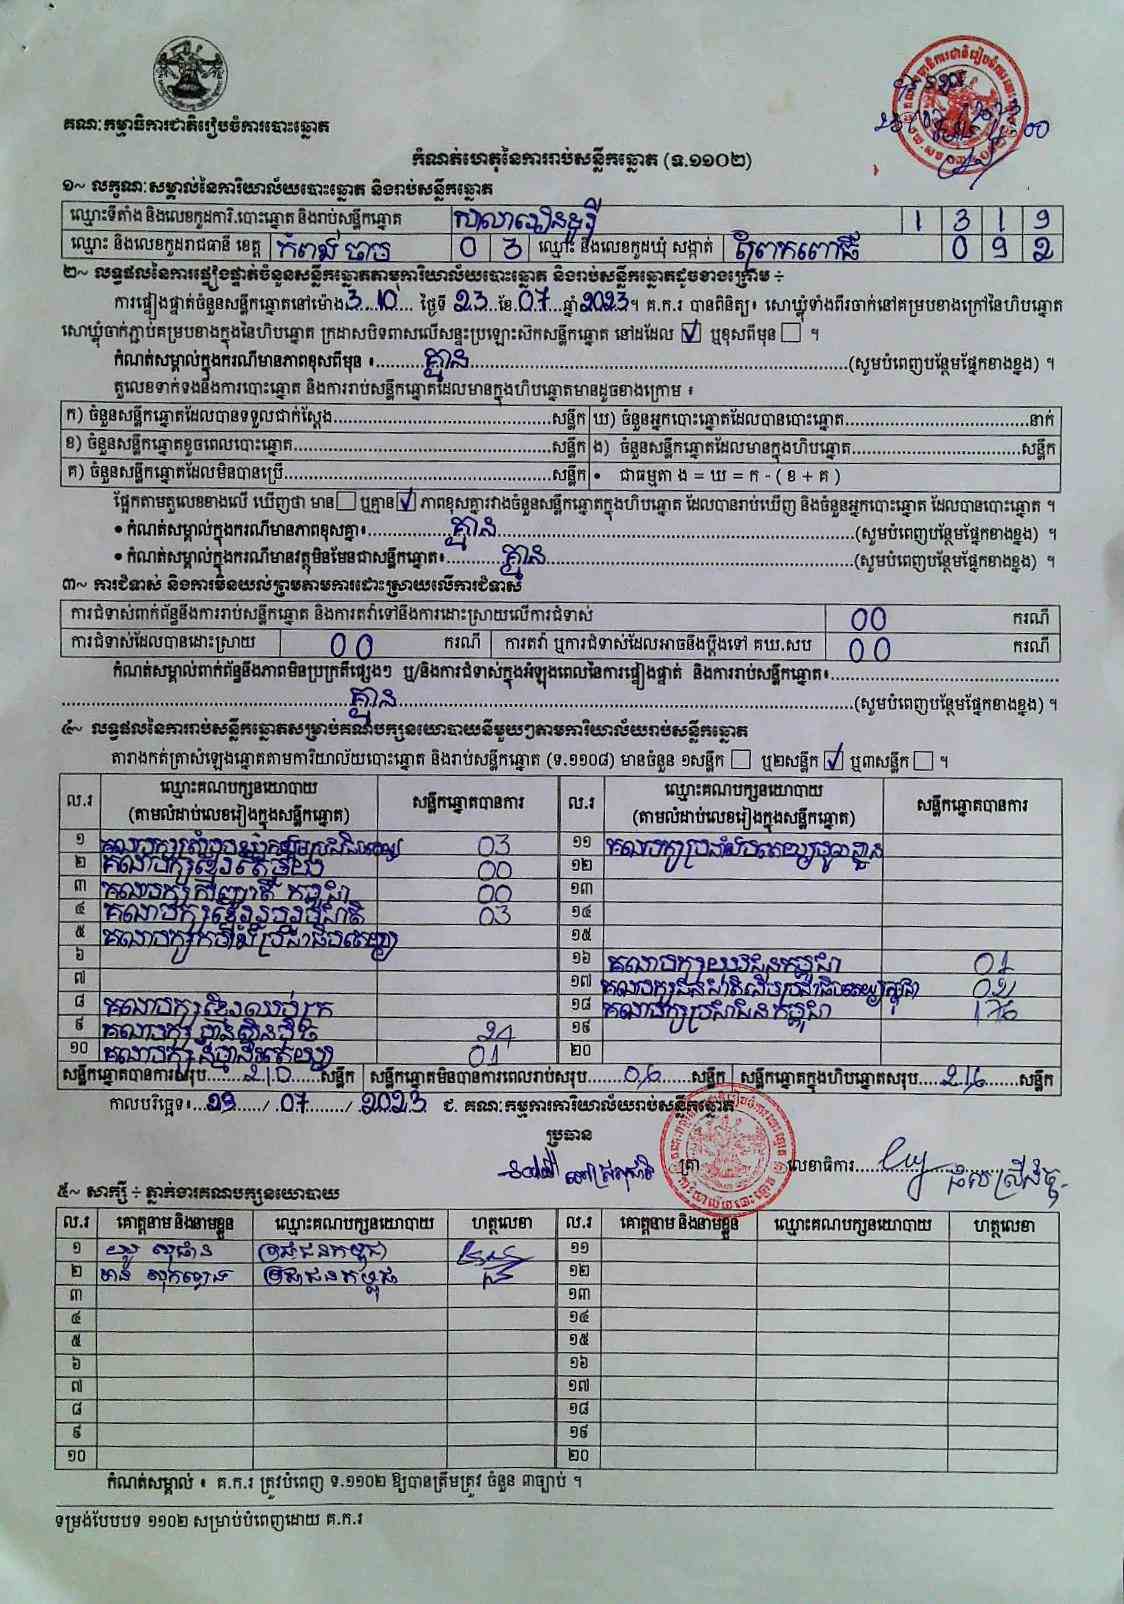 គណៈកម្មាធិការជាតិរៀបចំការបោះឆ្នោត
កំណត់ហេតុនៃការរាប់សន្លឹកឆ្នោត (ទ.១១០២)
១~ លក្ខណៈសម្គាល់នៃការិយាល័យបោះឆ្នោត និងរាប់សន្លឹកឆ្នោត
ឈ្មោះទីតាំង និងលេខកូដការិ.បោះឆ្នោត និងរាប់សន្លឹកឆ្នោត 1 3 1 9
ឈ្មោះ និងលេខកូដរាជធានី ខេត្ត កំពង់ចាម 0 3 ឈ្មោះ និងលេខកូដឃុំ សង្កាត់ ព្រែកពោធិ៍ 0 9 2
២~ លទ្ធផលនៃការផ្ទៀងផ្ទាត់ចំនួនសន្លឹកឆ្នោតតាមការិយាល័យបោះឆ្នោត និងរាប់សន្លឹកឆ្នោតដូចខាងក្រោម ÷
ការផ្ទៀងផ្ទាត់ចំនួនសន្លឹកឆ្នោតនៅម៉ោង 3.10 ថ្ងៃទី 23 ខែ 07 ឆ្នាំ 2023។ គ.ក.រ បានពិនិត្យ៖ សោឃ្លុំទាំងពីរចាក់នៅគម្របខាងក្រៅនៃហិបឆ្នោត
សោឃ្លុំចាក់ភ្ជាប់គម្របខាងក្នុងនៃហិបឆ្នោត ក្រដាសបិទពាសលើសន្ទះប្រឡោះស៊កសន្លឹកឆ្នោត នៅដដែល ☑ ឬខុសពីមុន ☐ ។
កំណត់សម្គាល់ក្នុងករណីមានភាពខុសពីមុន ៖ គ្មាន (សូមបំពេញបន្ថែមផ្នែកខាងខ្នង) ។
តួលេខទាក់ទងនឹងការបោះឆ្នោត និងការរាប់សន្លឹកឆ្នោតដែលមានក្នុងហិបឆ្នោតមានដូចខាងក្រោម ៖
ក) ចំនួនសន្លឹកឆ្នោតដែលបានទទួលជាក់ស្តែង សន្លឹក ឃ) ចំនួនអ្នកបោះឆ្នោតដែលបានបោះឆ្នោត នាក់
ខ) ចំនួនសន្លឹកឆ្នោតខូចពេលបោះឆ្នោត សន្លឹក ង) ចំនួនសន្លឹកឆ្នោតដែលមានក្នុងហិបឆ្នោត សន្លឹក
គ) ចំនួនសន្លឹកឆ្នោតដែលមិនបានប្រើ សន្លឹក • ជាធម្មតា ង = ឃ = ក - ( ខ + គ )
ផ្អែកតាមតួលេខខាងលើ ឃើញថា មាន ☐ ឬគ្មាន ☑ ភាពខុសគ្នារវាងចំនួនសន្លឹកឆ្នោតក្នុងហិបឆ្នោត ដែលបានរាប់ឃើញ និងចំនួនអ្នកបោះឆ្នោត ដែលបានបោះឆ្នោត ។
• កំណត់សម្គាល់ក្នុងករណីមានភាពខុសគ្នា៖ គ្មាន (សូមបំពេញបន្ថែមផ្នែកខាងខ្នង) ។
• កំណត់សម្គាល់ក្នុងករណីមានវត្ថុមិនមែនជាសន្លឹកឆ្នោត៖ គ្មាន (សូមបំពេញបន្ថែមផ្នែកខាងខ្នង) ។
៣~ ការជំទាស់ និងការមិនយល់ព្រមតាមការដោះស្រាយលើការជំទាស់
ការជំទាស់ពាក់ព័ន្ធនឹងការរាប់សន្លឹកឆ្នោត និងការតវ៉ាទៅនឹងការដោះស្រាយលើការជំទាស់ 00 ករណី
ការជំទាស់ដែលបានដោះស្រាយ 00 ករណី ការតវ៉ា ឬការជំទាស់ដែលអាចនឹងប្តឹងទៅ គឃ.សប 00 ករណី
កំណត់សម្គាល់ពាក់ព័ន្ធនឹងភាពមិនប្រក្រតីផ្សេងៗ ឬ/និងការជំទាស់ក្នុងអំឡុងពេលនៃការផ្ទៀងផ្ទាត់ និងការរាប់សន្លឹកឆ្នោត៖
គ្មាន (សូមបំពេញបន្ថែមផ្នែកខាងខ្នង) ។
៤~ លទ្ធផលនៃការរាប់សន្លឹកឆ្នោតសម្រាប់គណបក្សនយោបាយនីមួយៗតាមការិយាល័យរាប់សន្លឹកឆ្នោត
តារាងកត់ត្រាសំឡេងឆ្នោតតាមការិយាល័យបោះឆ្នោត និងរាប់សន្លឹកឆ្នោត (ទ.១១០៨) មានចំនួន ១សន្លឹក ☐ ឬ២សន្លឹក ☑ ឬ៣សន្លឹក ☐ ។
ល.រ ឈ្មោះគណបក្សនយោបាយ (តាមលំដាប់លេខរៀងក្នុងសន្លឹកឆ្នោត) សន្លឹកឆ្នោតបានការ ល.រ ឈ្មោះគណបក្សនយោបាយ (តាមលំដាប់លេខរៀងក្នុងសន្លឹកឆ្នោត) សន្លឹកឆ្នោតបានការ
១ 03 ១១
២ គណបក្សខ្មែរតែមួយ 00 ១២
៣ 00 ១៣
៤ 03 ១៤
៥ ១៥
៦ ១៦ គណបក្សយុវជនកម្ពុជា 01
៧ ១៧ 02
៨ គណបក្សខ្មែរឈប់ក្រ ១៨ គណបក្សប្រជាជនកម្ពុជា 176
៩ 24 ១៩
១០ 01 ២០
សន្លឹកឆ្នោតបានការសរុប 210 សន្លឹក សន្លឹកឆ្នោតមិនបានការពេលរាប់សរុប 06 សន្លឹក សន្លឹកឆ្នោតក្នុងហិបឆ្នោតសរុប 216 សន្លឹក
កាលបរិច្ឆេទ៖ 23 / 07 / 2023 ជ. គណៈកម្មការការិយាល័យរាប់សន្លឹកឆ្នោត
ប្រធាន
ត្រា លេខាធិការ
៥~ សាក្សី ÷ ភ្នាក់ងារគណបក្សនយោបាយ
ល.រ គោត្តនាម និងនាមខ្លួន ឈ្មោះគណបក្សនយោបាយ ហត្ថលេខា ល.រ គោត្តនាម និងនាមខ្លួន ឈ្មោះគណបក្សនយោបាយ ហត្ថលេខា
១ ប្រជាជនកម្ពុជា ១១
២ ប្រជាជនកម្ពុជា ១២
៣ ១៣
៤ ១៤
៥ ១៥
៦ ១៦
៧ ១៧
៨ ១៨
៩ ១៩
១០ ២០
កំណត់សម្គាល់ ៖ គ.ក.រ ត្រូវបំពេញ ទ.១១០២ ឱ្យបានត្រឹមត្រូវ ចំនួន ៣ច្បាប់ ។
ទម្រង់បែបបទ ១១០២ សម្រាប់បំពេញដោយ គ.ក.រ